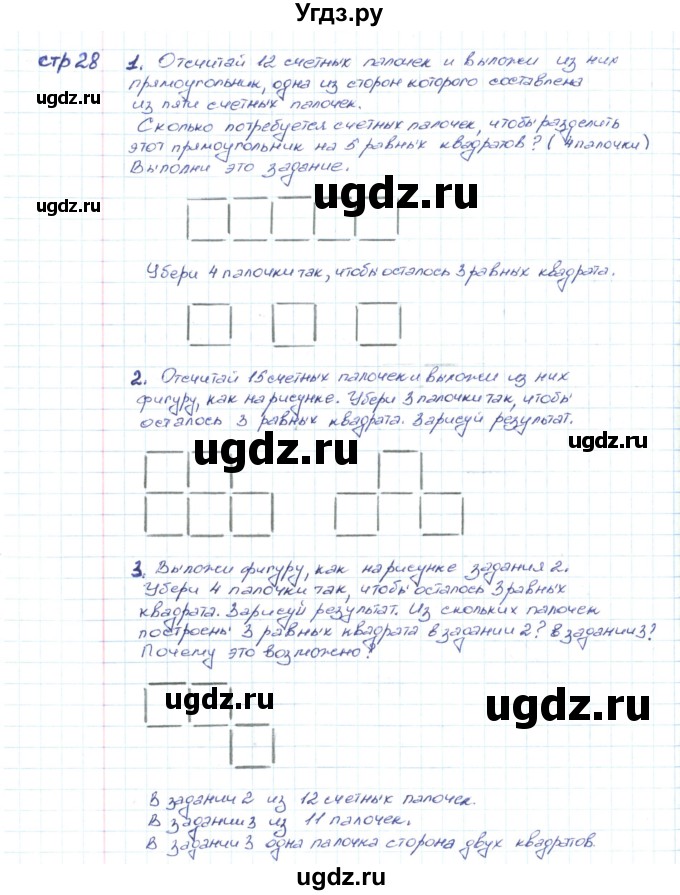 Угдз.ру
стр 28
1. Отсчитай 12 счетных палочек и выложи из них
прямоугольник, одна из сторон которого составлена
из пяти счетных палочек.
ugdz.ru
Сколько потребуется счетных палочек, чтобы разделить
этот прямоугольник на 5 равных квадратов? (4 палочки)
Выполни это задание.
ugdz.ru
ugdz.ru
Убери 4 палочки так, чтобы осталось 3 равных квадрата.
2. Отсчитай 15 счетных палочек и выложи из них
фигуру, как на рисунке. Убери 3 палочки так, чтобы
осталось 3 равных квадрата. Зарисуй результат.
ugdz.ru
ugdz.ru
3. Выложи фигуру, как на рисунке задания 2.
Убери 4 палочки так, чтобы осталось 3 равных
квадрата. Зарисуй результат. Из скольких палочек
построены 3 равных квадрата в задании 2? В задании 3?
Почему это возможно?
ugdz.ru
ugdz.ru
В задании 2 из 12 счетных палочек.
В задании 3 из 11 палочек.
В задании 3 одна палочка сторона двух квадратов.
ugdz.ru
ugdz.ru